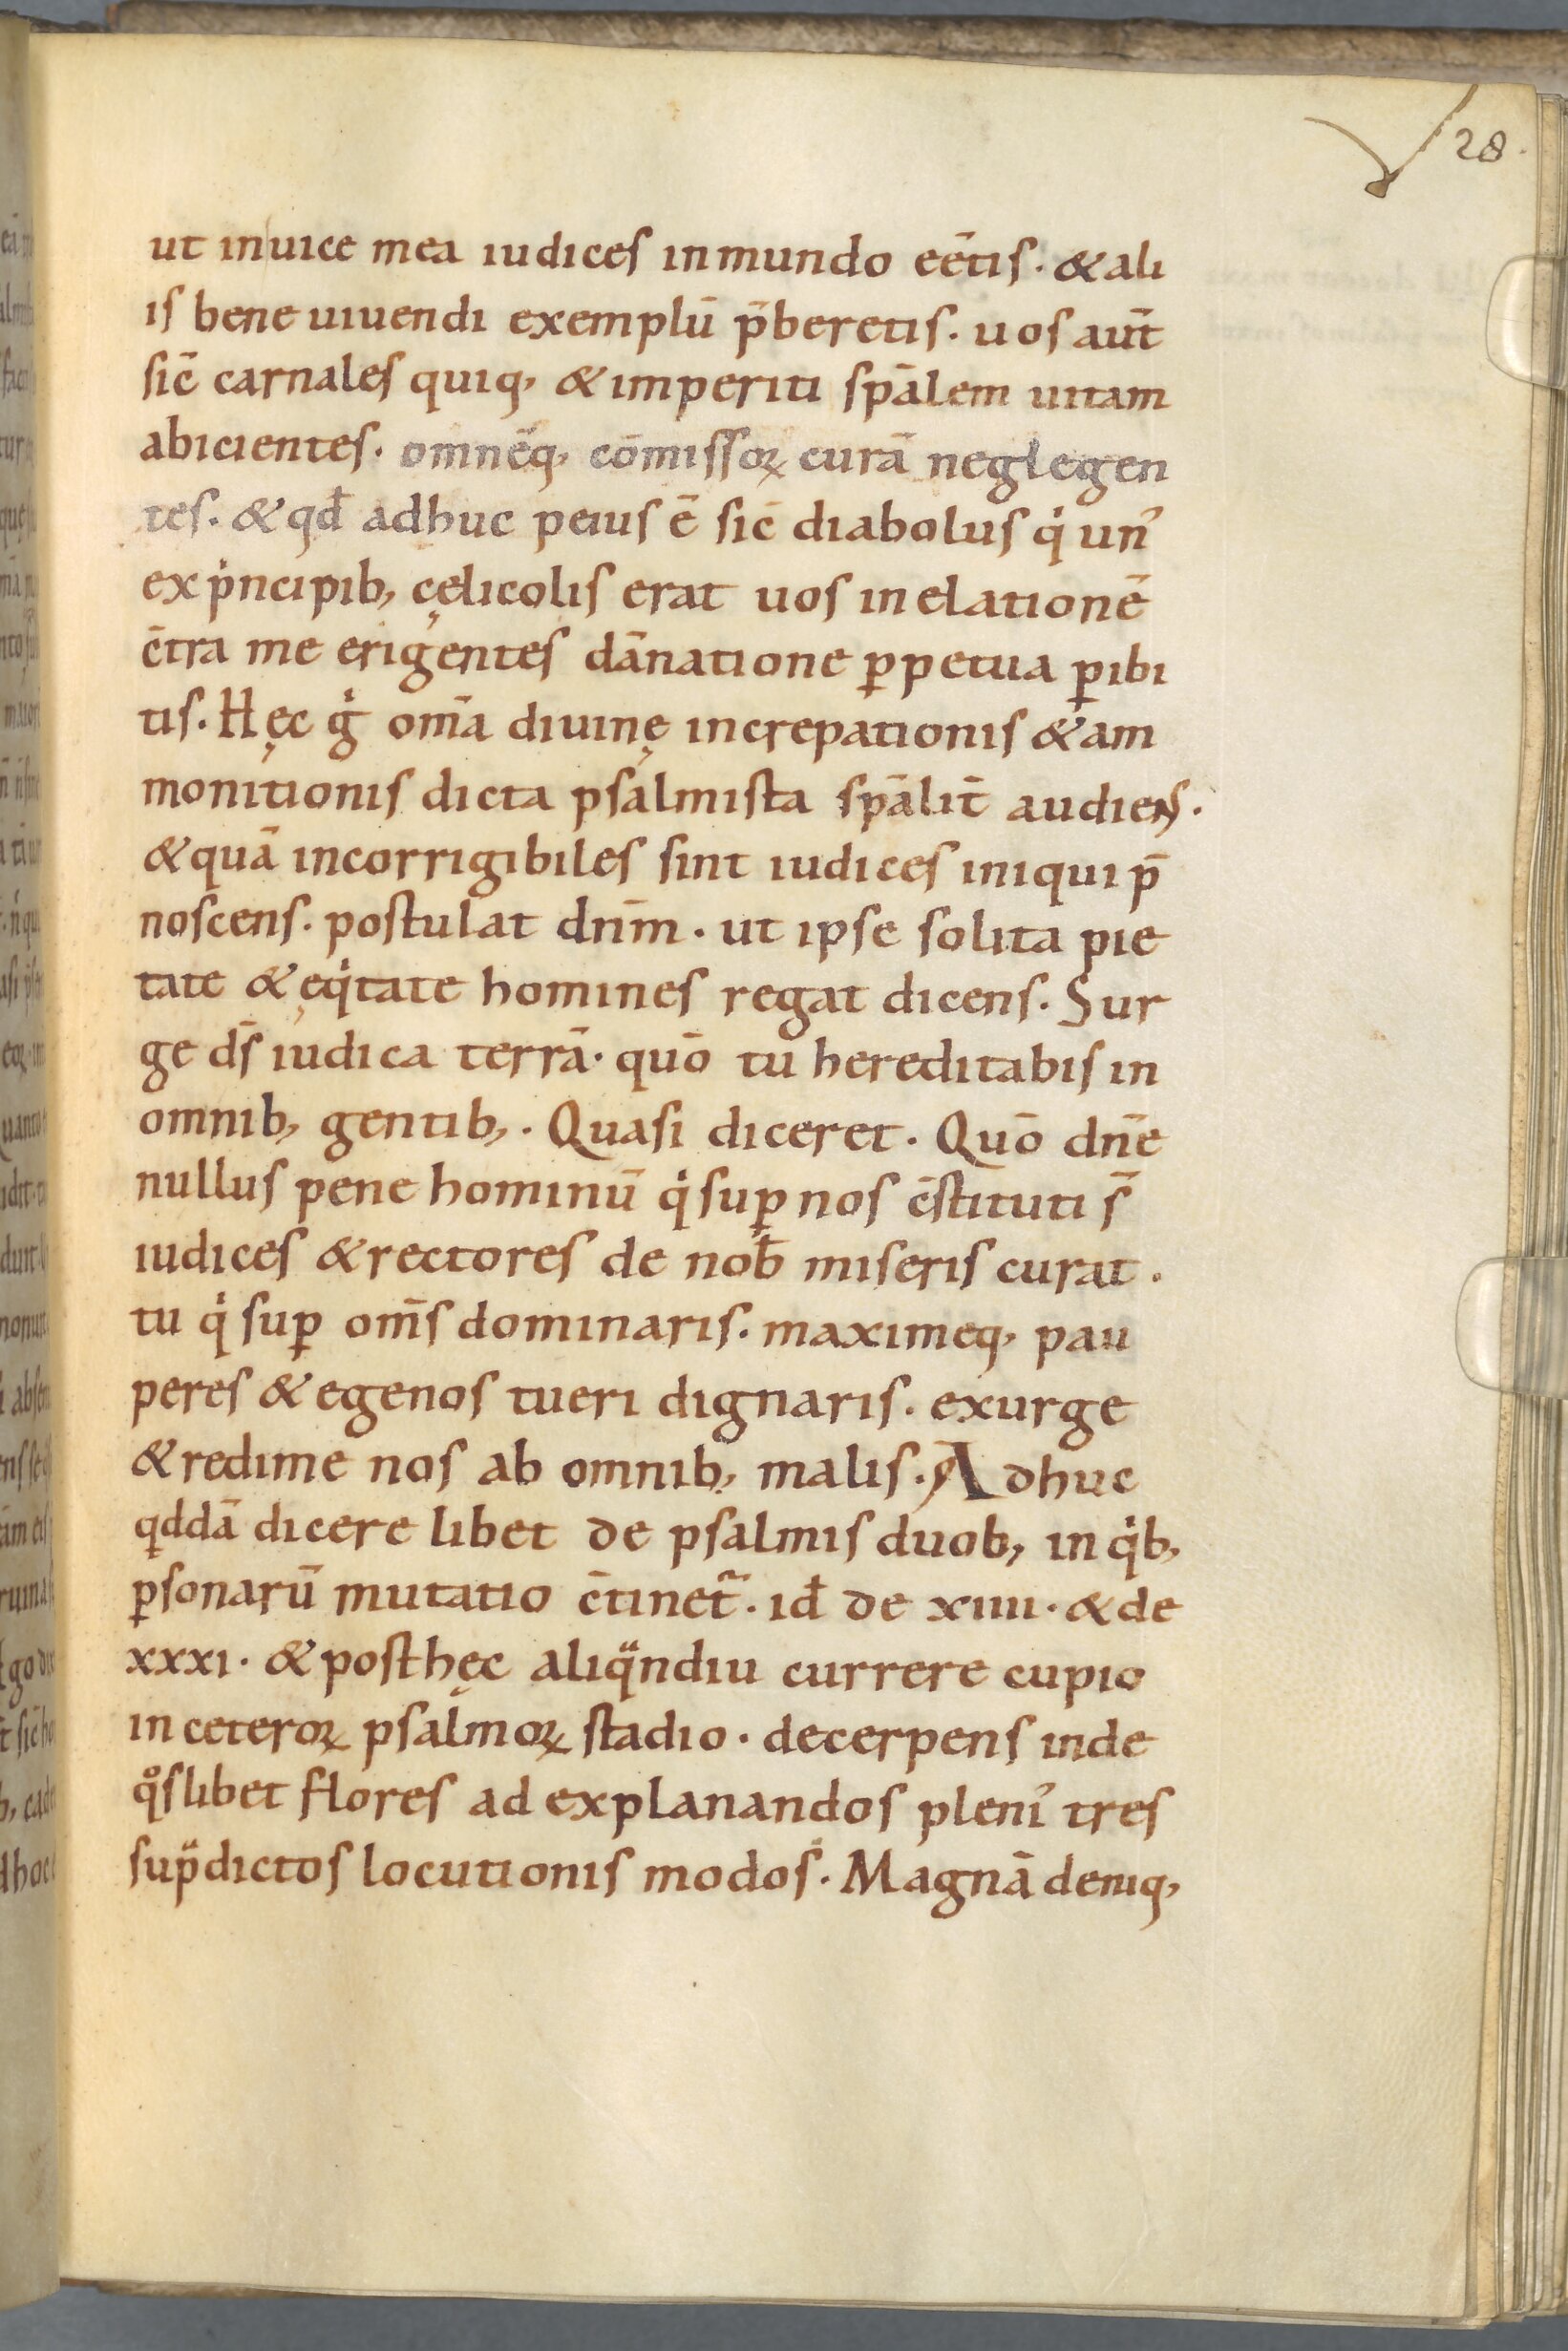 28.
ut inuice mea iudices in mundo eētis. & ali
is bene uiuendi exemplū p̄beretis. uos aut̄
sic̄ carnales quiq, & imperiti sp̄alem uitam
abicientes. omnēq, cōmissoꝝ curā neglegen
tes. & qd̄ adhuc peius ē sic̄ diabolus qͥ un᾿
ex pͥncipib, cęlicolis erat uos in elationē
c̄tra me erigentes dānatione ꝑpetua ꝑibi
tis. Hęc gͥ om̄a diuinę increpationis & am
monitionis dicta psalmista sp̄alit̄ audiens.
& quā incorrigibiles sint iudices iniqui p̄
noscens. postulat dn̄m. ut ipse solita pie
tate & ęqͥtate homines regat dicens. Sur
ge ds̄ iudica terrā. quō tu hereditabis in
omnib, gentib,. Quasi diceret. Quō dn̄e
nullus pene hominū qͥ suꝑ nos c̄stituti s̄
iudices & rectores de nob̄ miseris curat.
tu qͥ suꝑ om̄s dominaris. maximeq, pau
peres & egenos tueri dignaris. exurge
& redime nos ab omnib, malis. Adhuc
qddā dicere libet de psalmis duob, in qͥb,
ꝑsonarū mutatio c̄tinet᷑. id̄ de xiiii. & de
xxxi. & post hęc aliqᷓndiu currere cupio
in ceteroꝝ psalmoꝝ stadio. decerpens inde
qͦslibet flores ad explanandos pleni᾿ tres
supᷓdictos locutionis modos. Magnā deniq,